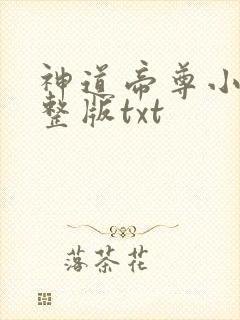 神道帝尊小
整版txt
落茶花